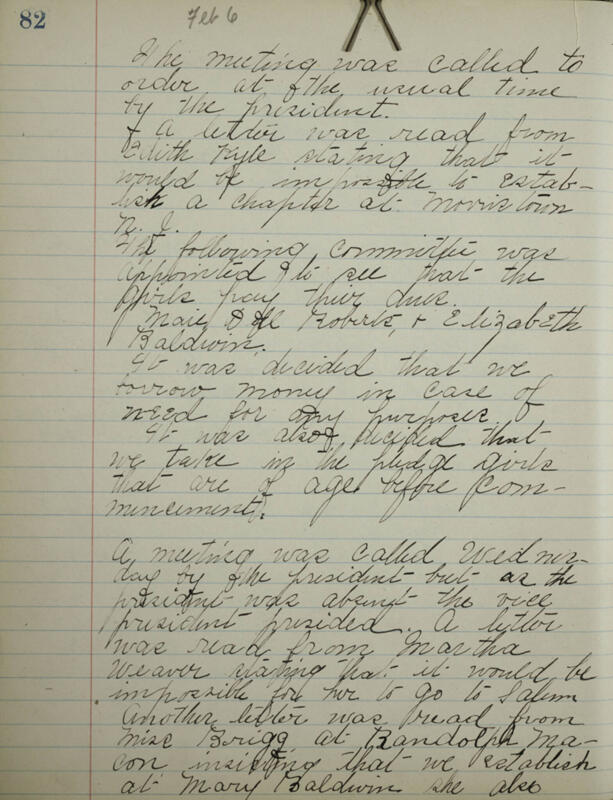 82
Feb 6
The meeting was called to
order at the usual time
by the president.
A letter was read from
Edith Kyle stating that it
would be impossible to Estab-
lish a chapter at Morristown
N. J.
The following committee was
appointed to see that the
girls pay their dues.
Roberts, & Elizabeth
Baldwin.
It was decided that we
borrow money in case of
need for any purposes.
It was also decided that
we take in the pledge girls
that are of age before Com-
mencement.
A meeting was called Wednes-
day by the president but as the
president was absent the vice
president presided. A letter
was read from Martha
Weaver stating that it would be
impossible for her to go to Salem
Another letter was read from
Miss Brigg at Randolph Ma-
con insisting that we establish
at Mary Baldwin she also